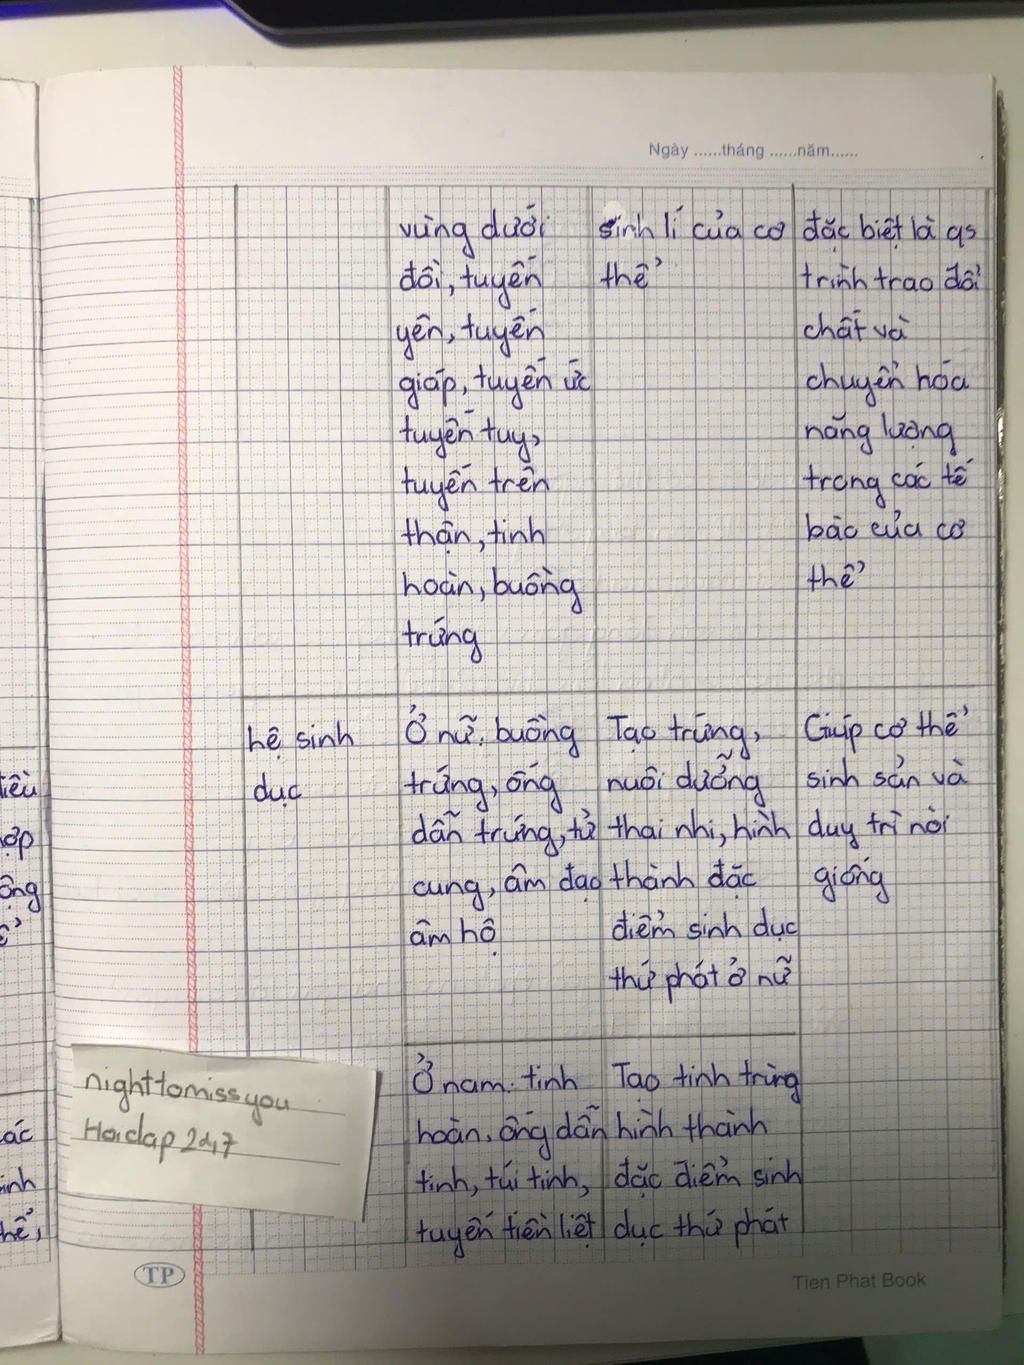 Ngày ......tháng ......năm......
vùng dưới
đồi, tuyến
yên, tuyến
giáp, tuyến ức
tuyến tuy,
tuyến trên
thận, tinh
hoàn, buồng
trứng
sinh lí của cơ
thể
đặc biệt là qs
trình trao đổi
chất và
chuyển hóa
năng lượng
trong các tế
bào của cơ
thể
hệ sinh
dục
Ở nữ: buồng
trứng, ống
dẫn trứng, tử
cung, âm đạo
âm hộ
Tạo trứng,
nuôi dưỡng
thai nhi, hình
thành đặc
điểm sinh dục
thứ phát ở nữ
Giúp cơ thể
sinh sản và
duy trì nòi
giống
Ở nam: tinh
hoàn, ống dẫn
tinh, túi tinh,
tuyến tiền liệt
Tạo tinh trùng
hình thành
đặc điểm sinh
dục thứ phát
nighttomissyou
Hoidap247
TP
Tien Phat Book